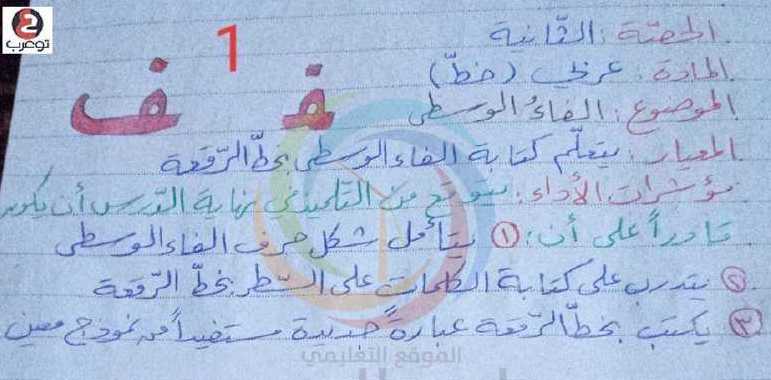 توعرب
1
الحصّة: الثّانية
المادة: عربي (خطّ)
ف ف
الموضوع: الفاءُ الوسطى
المعيار: يتعلّم كتابة الفاء الوسطى بخطّ الرّقعة
مؤشرات الأداء: يتوقع من التلميذ في نهاية الدّرس أن يكون
قادراً على أن: ① يتأمل شكل حرف الفاء الوسطى
② يتدرب على كتابة الكلمات على السّطر بخطّ الرّقعة
③ يكتب بخطّ الرّقعة عبارةً جديدة مستفيداً من نموذج معين
الموقع التعليمي